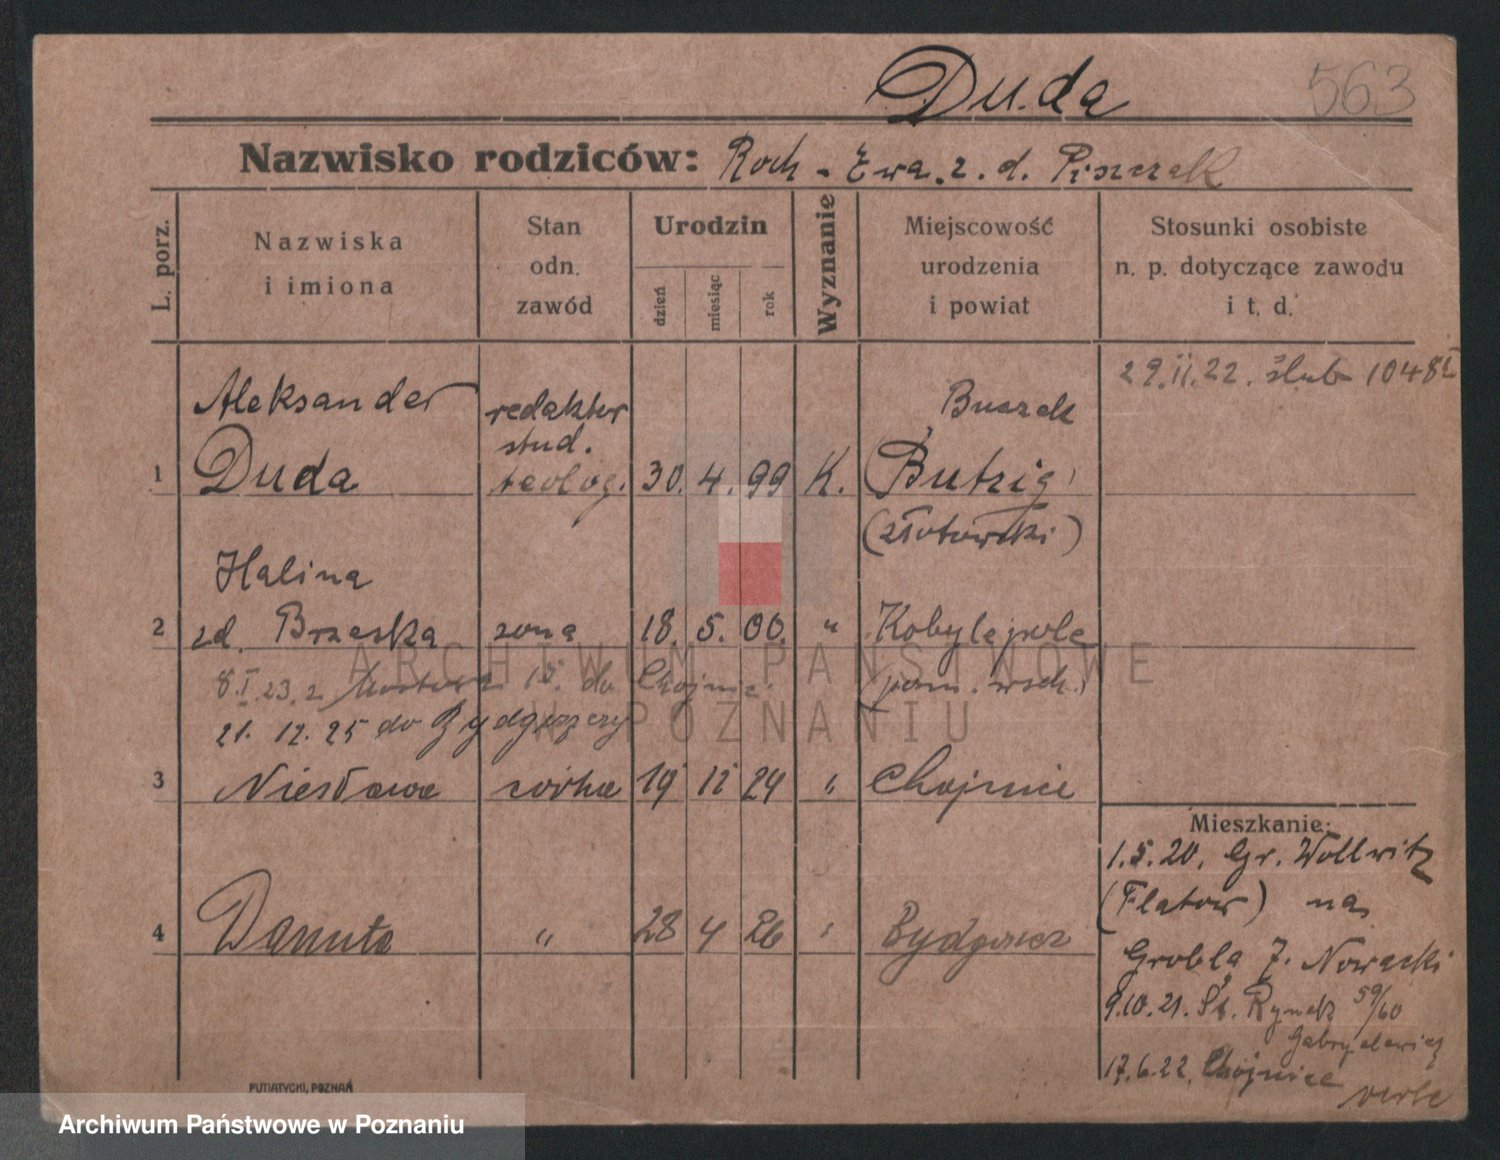 Duda
563
Nazwisko rodziców: Roch - Ewa z. d. Piszczek
L. porz.
Nazwiska i imiona
Stan odn. zawód
Urodzin
dzień miesiąc rok
Wyznanie
Miejscowość urodzenia i powiat
Stosunki osobiste n. p. dotyczące zawodu i t. d.
29.II.22. ślub 1048
Aleksander redaktor Buszek
stud.
1 Duda teolog. 30. 4. 99 K. (Butzig)
(złotowski)
Halina
2 zd. Brzeska żona 18. 5. 00. " Kobylepole
8.I.23. z 15. do Chojnic. (pozn. wsch.)
21. 12. 25 do Bydgoszczy
3 Niesława córka 19 11 24 " Chojnice
4 Danuta " 28 4 26 " Bydgoszcz
Mieszkanie:
1.5.20. Gr. Wollwitz
(Flatow) na
Grobla 7. Nowacki
9.10.21. St. Rynek 59/60
Gabryelewicz
17.6.22. Chojnice
verte
PUTIATYCKI, POZNAŃ
ARCHIWUM PAŃSTWOWE
W POZNANIU
Archiwum Państwowe w Poznaniu